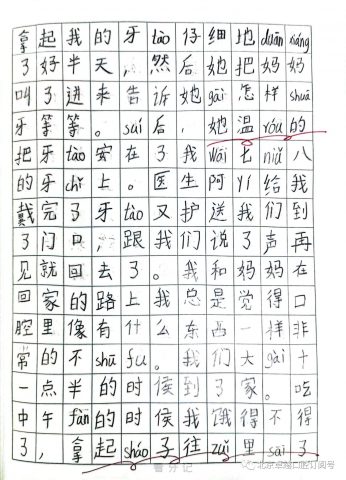 拿起我的牙tào仔细地duān xiáng
了好半天，然后她把妈妈
叫了进来告诉她gāi怎样shuā
牙等等。suí后，她温róu的
把牙tào安在了我wāi七niǔ八
的牙chǐ上。医生阿yí给我
戴完了牙tào又护送我们到
了门口，跟我们说了声再
见就回去了。我和妈妈在
回家的路上我总是觉得口
腔里像有什么东西一样非
常的不shū fu。我们大gài十
一点半的时侯到了家。吃
中午fàn的时侯我饿得不得
了，拿起sháo子往zuǐ里sāi了
曹分记
北京卓越口腔订阅号